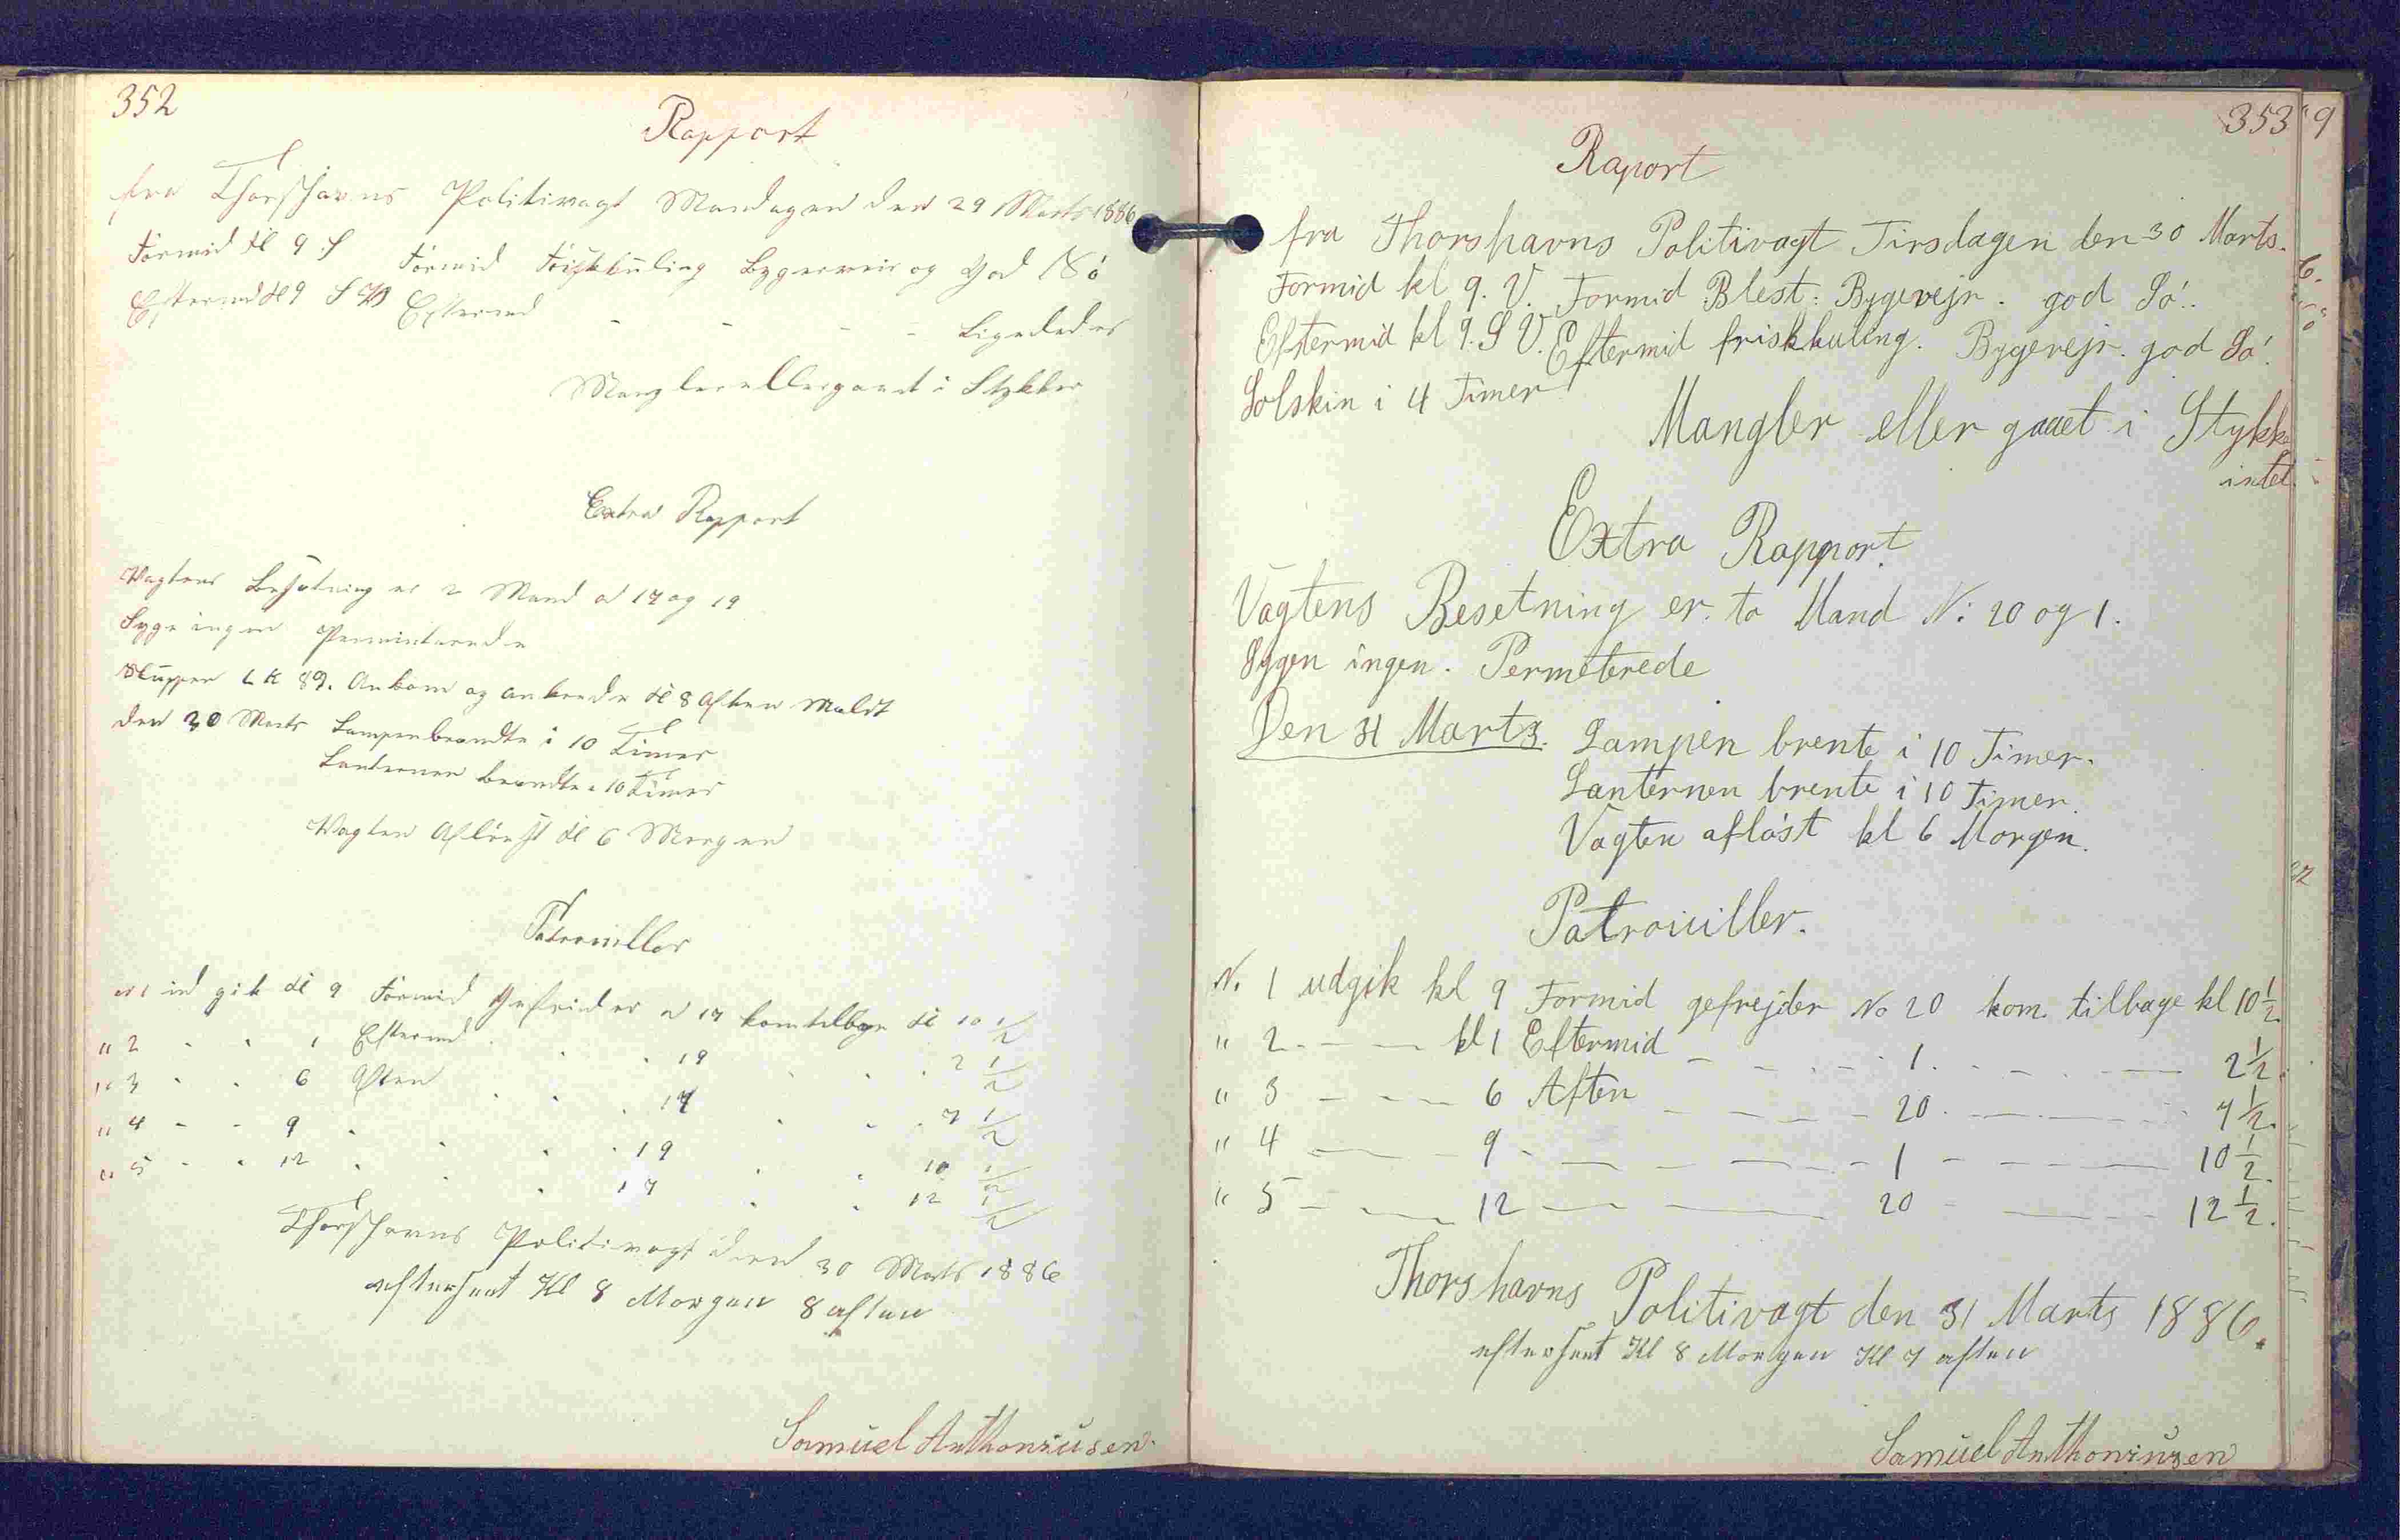 352
Rapport
fra Thorshavns Politivagt Mandagen den 29 Marts 1886
Formid kl 9 S Formid friskkuling Bygeveir og god Sö
Eftermd kl 9 S V Eftermd - - - - Ligeledes
Mangler eller gaaet i Stykker
Extra Rapport
Vagtens Besætning er 2 Mand N 17 og 19
Syge ingen Permiterede
Sluppen L K 89. Ankom og ankrede kl 8 Aften Meldt
den 30 Marts Lampen brændte i 10 Timer
Lanternen brændte i 10 Timer
Vagten Aflöst kl 6 Morgen
Patrouiller
N 1 ud gik kl 9 Formid Gefreider N 17 kom tilbage kl 10 1/2
" 2 - - 1 Eftermd - - 19 - - 2 1/2
" 3 - - 6 Aften - - 17 - - 7 1/2
" 4 - - 9 - - - 19 - - 10 1/2
" 5 - - 12 - - - 17 - - 12 1/2
Thorshavns Politivagt den 30 Marts 1886
efterseet Kl 8 Morgen 8 aften
Samuel Anthoniusen.
353
9
Raport
fra Thorshavns Politivagt Tirsdagen den 30 Marts.
Formid kl 9. V. Formid Blest. Bygevejr. god Sö.
Eftermid kl 9. S V. Eftermid friskkuling. Bygevejr. god Sö.
Solskin i 4 Timer
Mangler eller gaaet i Stykke
intet.
Extra Rapport.
Vagtens Besetning er. to Mand N: 20 og 1.
Sygen ingen. Permeterede
Den 31 Marts. Lampen brente i 10 Timer.
Lanternen brente i 10 Timer.
Vagten aflöst kl 6 Morgen.
Patrouiller.
N. 1 udgik kl 9 Formid gefrejder No 20 kom. tilbage kl 10 1/2.
" 2 - - - kl 1 Eftermid - - - 1. - - - 2 1/2.
" 3 - - - 6 Aften - - - 20. - - - 7 1/2.
" 4 - - - 9 - - - 1 - - - 10 1/2.
" 5 - - - 12 - - - 20 - - - 12 1/2.
Thorshavns Politivagt den 31 Marts 1886.
efterseet Kl 8 Morgen Kl 7 aften
Samuel Anthoniusen